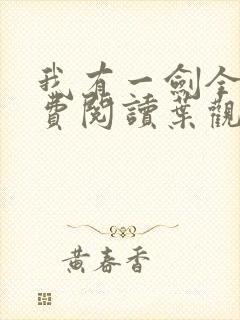 我有一劍全
費閱讀葉觀
黃春香